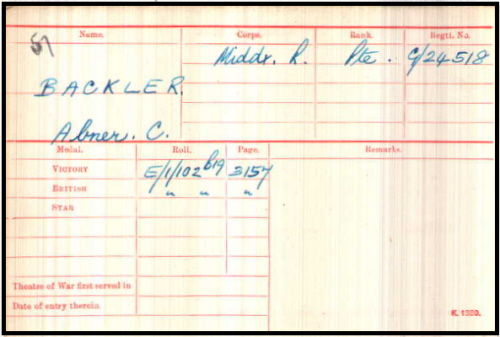 Name. Corps. Rank. Regtl. No.
Middx. R. Pte. G/24518
BACKLER.
Abner. C.
Medal. Roll. Page. Remarks.
VICTORY E/1/102 B19 3157
BRITISH " " "
STAR
Theatre of War first served in
Date of entry therein
K. 1380.